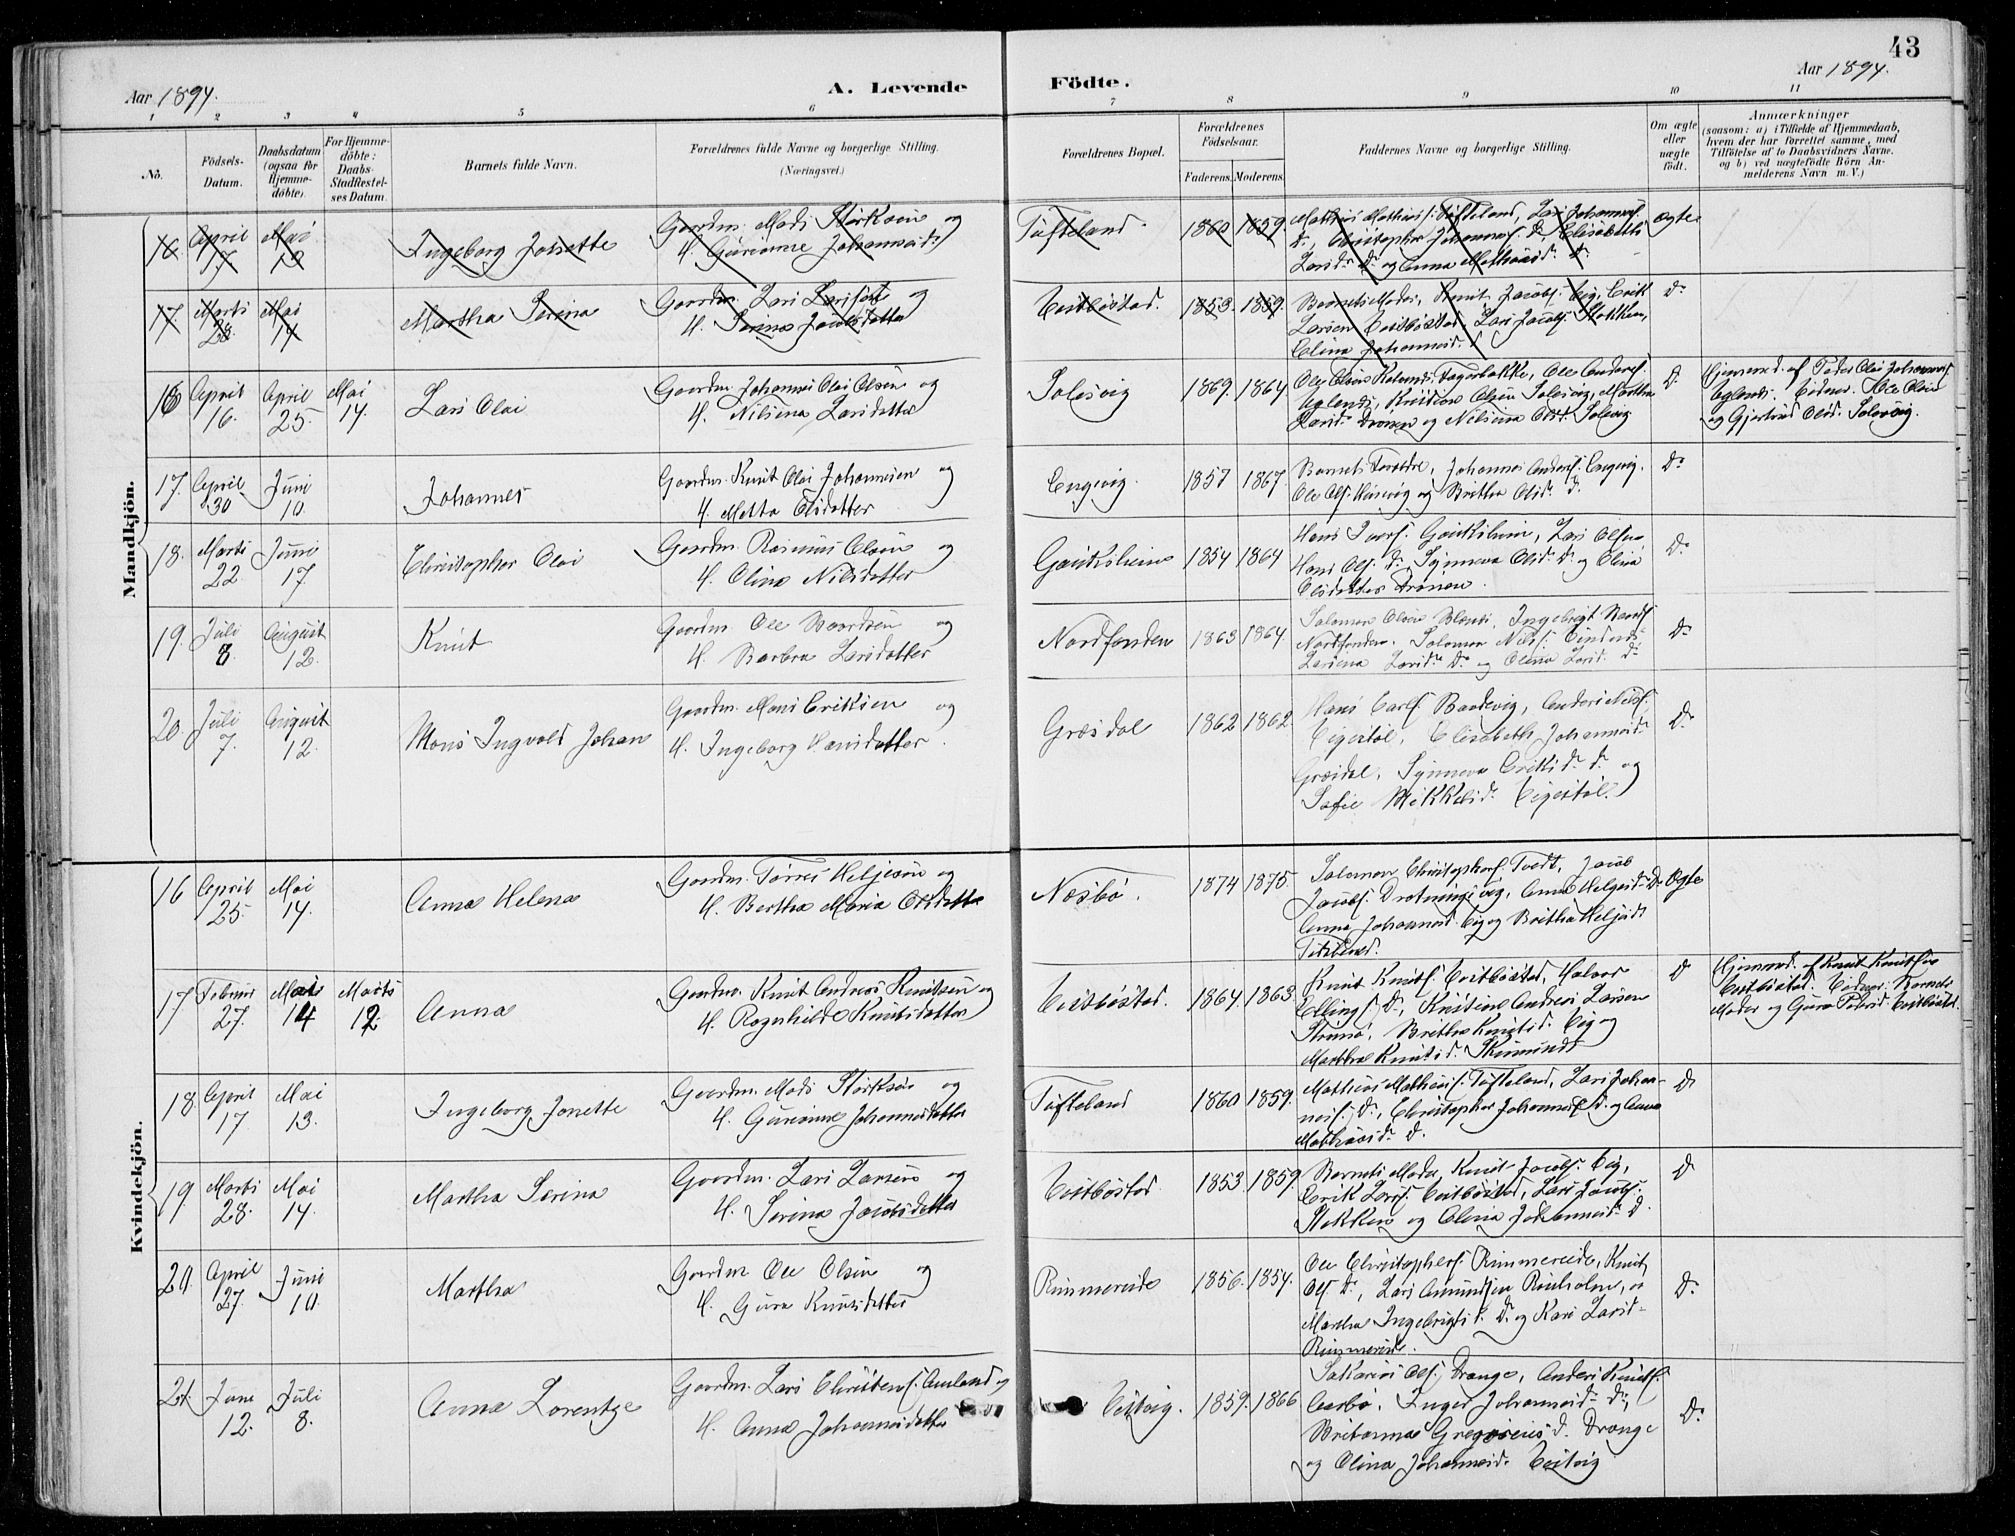 43
Aar 1894.
A. Levende Födte.
Aar 1894.
1 2 3 4 5 6 7 8 9 10 11
No.
Födsels-Datum.
Daabsdatum (ogsaa for Hjemme-döbte).
For Hjemme-döbte: Daabs-Stadfæstel-ses Datum.
Barnets fulde Navn.
Forældrenes fulde Navne og borgerlige Stilling. (Næringsvei.)
Forældrenes Bopæl.
Forældrenes Födselsaar.
Faderens. Moderens.
Faddernes Navne og borgerlige Stilling.
Om ægte eller uægte födt.
Anmærkninger
(saasom: a) i Tilfælde af Hjemmedaab, hvem der har forrettet samme, med Tilföielse af to Daabsvidners Navne. og b) ved uægtefödte Börn An-melderens Navn m. V.)
Mandkjön.
16 April 17 Mai 13 Ingeborg Jonette
Gaardm. Mads Störksen og
H. Gurianne Johannesd.
Töfteland 1860 1859
Mathias Mathiass. Töfteland, Lars Johanness.
D., Christopher Johanness. D., Elisabeth
Larsd. D. og Anna Mathiasd. D.
Ægte
17 Marts 28. Mai 14 Martha Serina
Gaardm. Lars Larsen og
H. Serina Jacobsdatter
Østbøstad. 1853. 1859.
Barnets Moder, Knut Jacobs. Eig, Erik
Larsen Østbøstad, Lars Jacobs. Stokken,
Elina Johannesd. D.
D.
16 April 16. April 25. Mai 14. Lars Olai
Gaardm. Johannes Olai Olsen og
H. Nilsina Larsdatter
Solesvig 1869. 1864
Ole Olsen Fagerbakke, Ole Anders.
Uglands, Kristian Olsen Solesvig, Martha
Larsd. Drönen og Nilsina Olsd. Solesvig
D.
Hjemmed. af Peder Olai Johanness.
Uglands. Vidner. Ole Olsen
og Gjertrud Olsd. Solesvig.
17. April 30 Juni 10. Johannes
Gaardm. Knut Olai Johannesen og
H. Metta Olsdatter
Engevig. 1857 1867.
Barnets Forældre, Johannes Anders. Engevig.
Ole Ols. og Britha Olsd. D.
D.
18. Marts 22. Juni 17. Christopher Olai
Gaardm. Rasmus Olsen og
H. Olina Nilsdatter
Gauksheim 1854 1864
Hans Ivers. Gauksheim, Lars Olsen
Hans Ols. D. Synneva Olsd. D. og Olina
Olsdatter Drönen.
D.
19. Juli 8. August 12. Knut
Gaardm. Ole Baardsen og
H. Barbra Larsdatter
Nordfonden 1863 1864.
Salomon Olsen, Ingebrigt Baards.
Nordfonden. Salomon Nils.
Larsina Larsd. D. og Olina Larsd. D.
D.
20. Juli 7. August 12. Mons Ingvald Johan
Gaardm. Mons Eriksen og
H. Ingeborg Hansdatter.
Græsdal 1862 1862.
Hans Carls. Baadevig, Anders Nils.
Elisabeth Johannesd.
Græsdal, Synneva Eriksd. D. og
Sofie Mikkelsd.
D.
Kvindekjön.
16 April 25. Mai 14. Anna Helena
Gaardm. Torres Heljesen og
H. Bertha Maria Olsdatter
Næsbö. 1874 1875.
Salomon Christophers. Tvedt, Jacob
Jacobs. Drotningsvig, Anna Helgesd. D.
Anna Johannesd. Eig og Britha Heljesd.
Ægte
17 Februar 27. Mai 14 Marts 12 Anna
Gaardm. Knut Andreas Knutsen og
H. Ragnhilde Knutsdatter
Østbøstad. 1864. 1863.
Knut Knuts. Østbøstad, Halvor
Ellings. D., Kristian Andreas Larsen
Britha Knutsd. Eig og
Martha Knutsd.
D
Hjemmed. af Knut Knutsen
Østbøstad. Vidner: Barnets
Moder og Guro Pedersd. Østbøstad.
18 April 17. Mai 13. Ingeborg Jonette
Gaardm. Mads Störksen og
H. Gurianne Johannesdatter
Töfteland 1860 1859.
Mathias Mathiass. Töfteland, Lars Johan-
ness. D., Christopher Johanness. D. og Anna
Mathiasd. D.
D
19. Marts 28. Mai 14. Martha Serina
Gaardm. Lars Larsen og
H. Serina Jacobsdatter
Østbøstad. 1853. 1859.
Barnets Moder, Knut Jacobs. Eig,
Erik Lars. Østbøstad, Lars Jacobs.
Stokken og Elina Johannesd. D.
D
20. April 27. Juni 10. Martha
Gaardm. Ole Olsen og
H. Guro Knutsdatter
Rimmereide 1856. 1854.
Ole Christophers. Rimmereide, Knut
Ols. D., Lars Amundsen
Martha Ingebrigtsd. D. og Kari Larsd.
Rimmereide.
D.
21. June 12. Juli 8. Anna Lorentze
Gaardm. Lars Christens. Auland og
H. Anna Johannesdatter
Østvig. 1859. 1866
Sakarias Ols. Drange, Anders Knuts.
Inger Johannesd. D.,
Britanna Gregoriusd. Drange
og Olina Johannesd. Østvig
D.